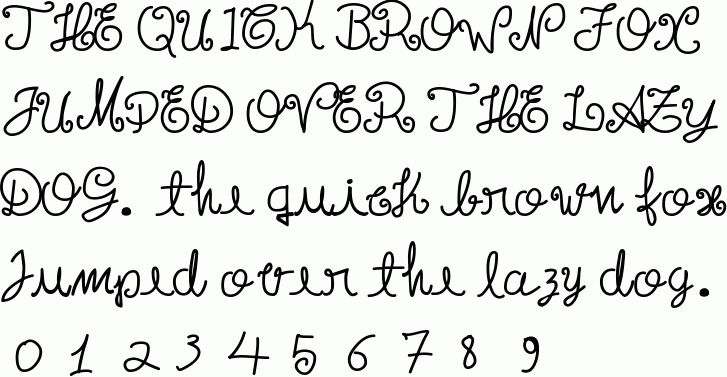 THE QUICK BROWN FOX
JUMPED OVER THE LAZY
DOG. the quick brown fox
Jumped over the lazy dog.
0 1 2 3 4 5 6 7 8 9